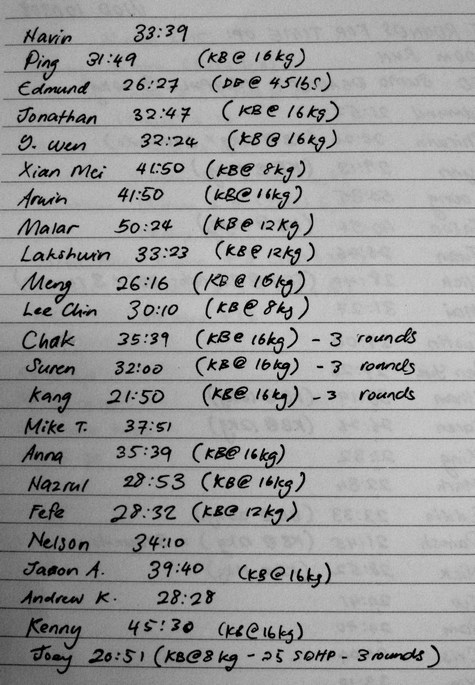 Navin 33:39
Ping 31:49 (KB @ 16kg)
Edmund 26:27 (DB @ 45lbs)
Jonathan 32:47 (KB @ 16kg)
Y. Wen 32:24 (KB @ 16kg)
Xian Mei 41:50 (KB@ 8kg)
Arwin 41:50 (KB@ 16kg)
Malar 50:24 (KB@ 12kg)
Lakshwin 33:23 (KB@ 12kg)
Meng 26:16 (KB @ 16kg)
Lee Chin 30:10 (KB @ 8kg)
Chak 35:39 (KB@ 16kg) - 3 rounds
Suren 32:00 (KB@ 16kg) - 3 rounds
Kang 21:50 (KB@ 16kg) - 3 rounds
Mike T. 37:51
Anna 35:39 (KB@ 16kg)
Nazrul 28:53 (KB@ 16kg)
Fefe 28:32 (KB@ 12kg)
Nelson 34:10
Jason A. 39:40 (KB@16kg)
Andrew K. 28:28
Kenny 45:30 (KB@16kg)
Joey 20:51 (KB@8kg - 25 SDHP - 3rounds)